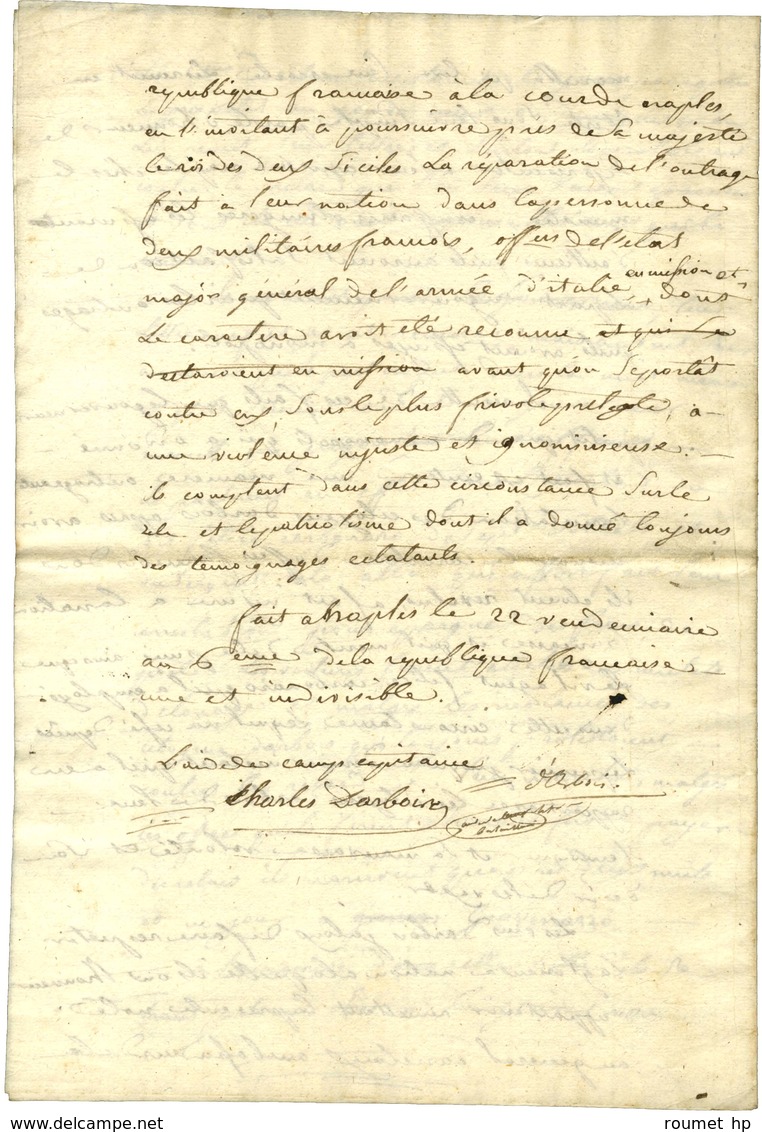 republique francaise à la cour de naples,
en l'invitant à poursuivre près de Sa majesté
le roi des deux Siciles La réparation de l'outrage
fait a leur nation dans la personne de
deux militaires francois, offrs de l'etat
en mission et
major général de l'armée d'italie, dont
Le caractere avoit eté reconnu et qui Se
en mission avant qu'on Se portât
contre eux Sous le plus frivole pretexte, à
une violence injuste et ignominieuse. —
ils comptent dans cette circonstance Sur le
zele et le patriotisme dont il a donné toujours
des temoignages eclatants.
fait a Naples le 22 vendemiaire
an 6eme de la republique francaise —
une et indivisible.
L'aide de camp capitaine
Charles Darbois
d'Arbois
www.delcampe.net
roumet hp